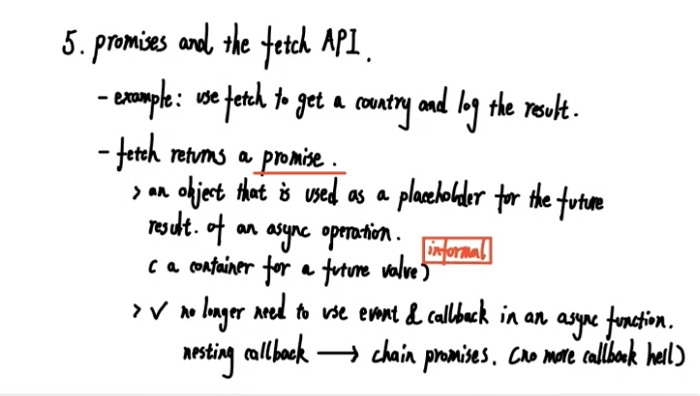 5. promises and the fetch API.
- example: use fetch to get a country and log the result.
- fetch returns a promise.
> an object that is used as a placeholder for the future
result. of an async operation.
informal
( a container for a future value)
> ✓ no longer need to use event & callback in an async function.
nesting callback → chain promises. (no more callback hell)